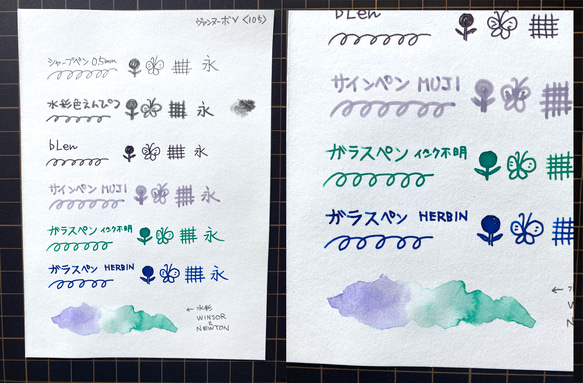 ヴァンヌーボV〈105〉
シャープペン 0.5mm
永
水彩色えんぴつ
永
bLen
永
サインペン MUJI
永
ガラスペン インク不明
永
ガラスペン HERBIN
永
← 水彩
WINSOR
&
NEWTON
bLen
サインペン MUJI
ガラスペン インク不明
ガラスペン HERBIN
←